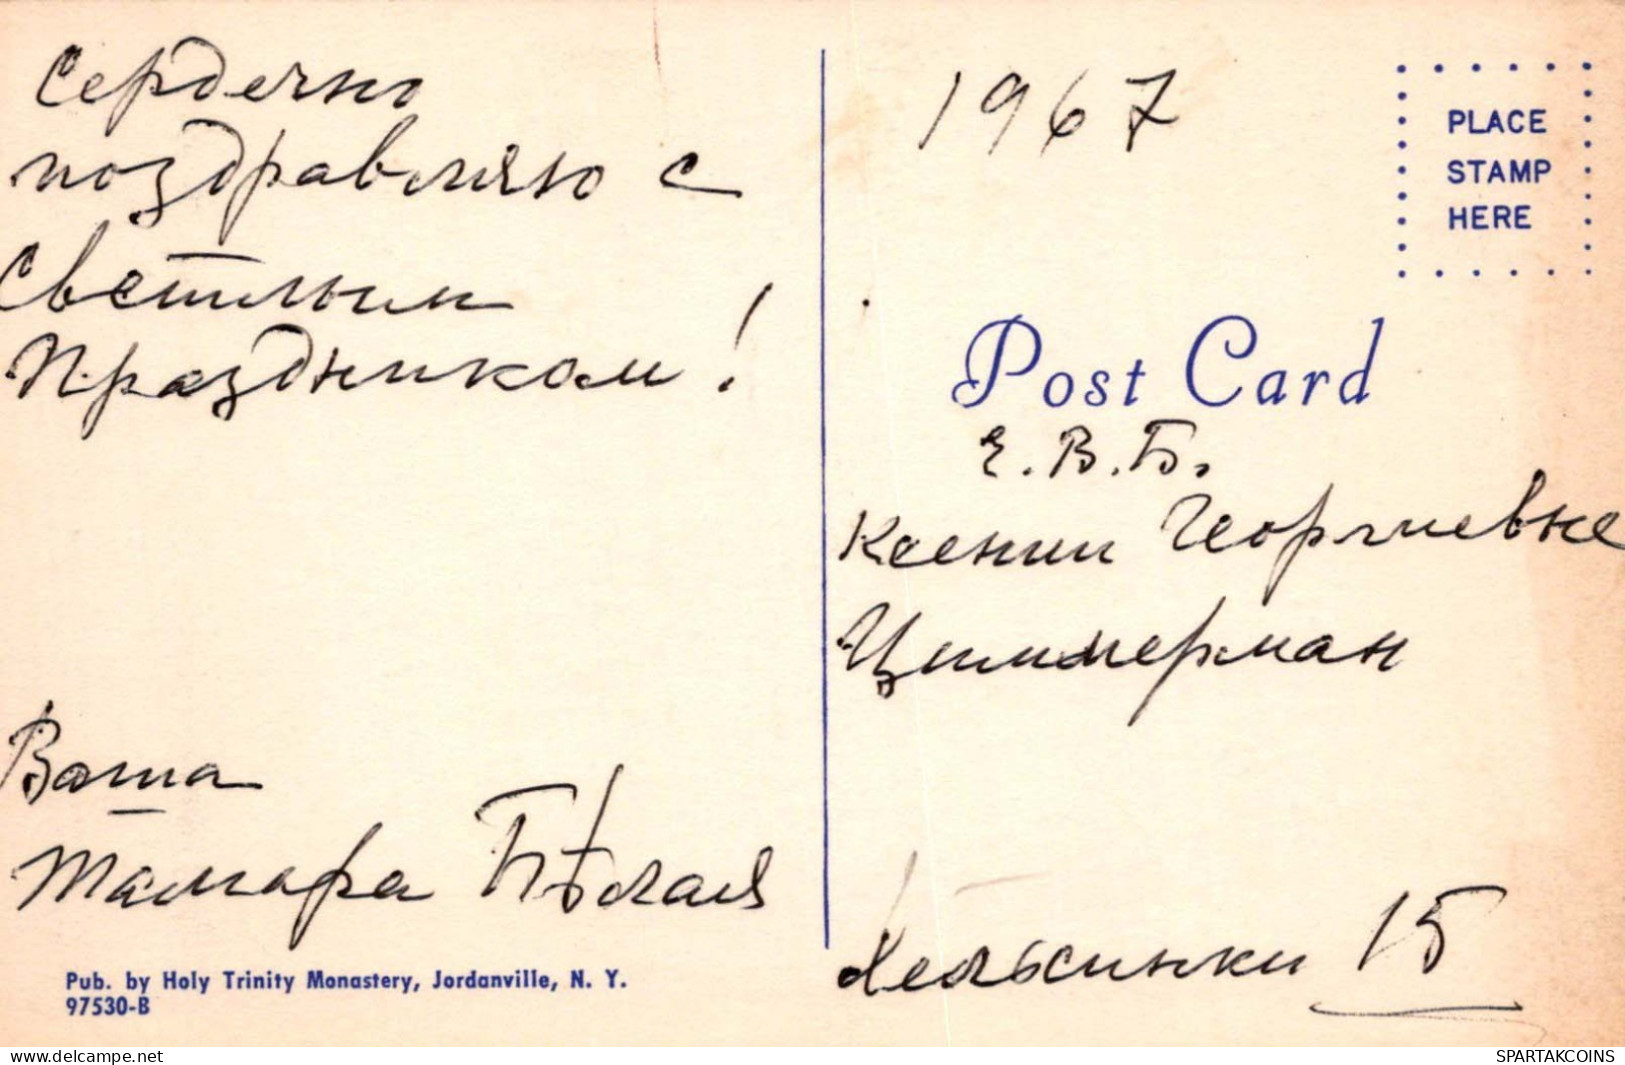 Сердечно
поздравляю с
Светлым
Праздником!
Ваша
Тамара Бѣлая
Pub. by Holy Trinity Monastery, Jordanville, N. Y.
97530-B
1967
PLACE
STAMP
HERE
Post Card
Е. В. Б.
Ксении Георгиевне
Циммерман
Хельсинки 15
www.delcampe.net
SPARTAKCOINS